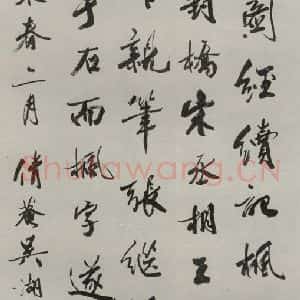 圖經續記楓
封橋朱丞相王
親筆張繼
于石而楓字遂
春二月倩菴吳湖
Shufawang.CN